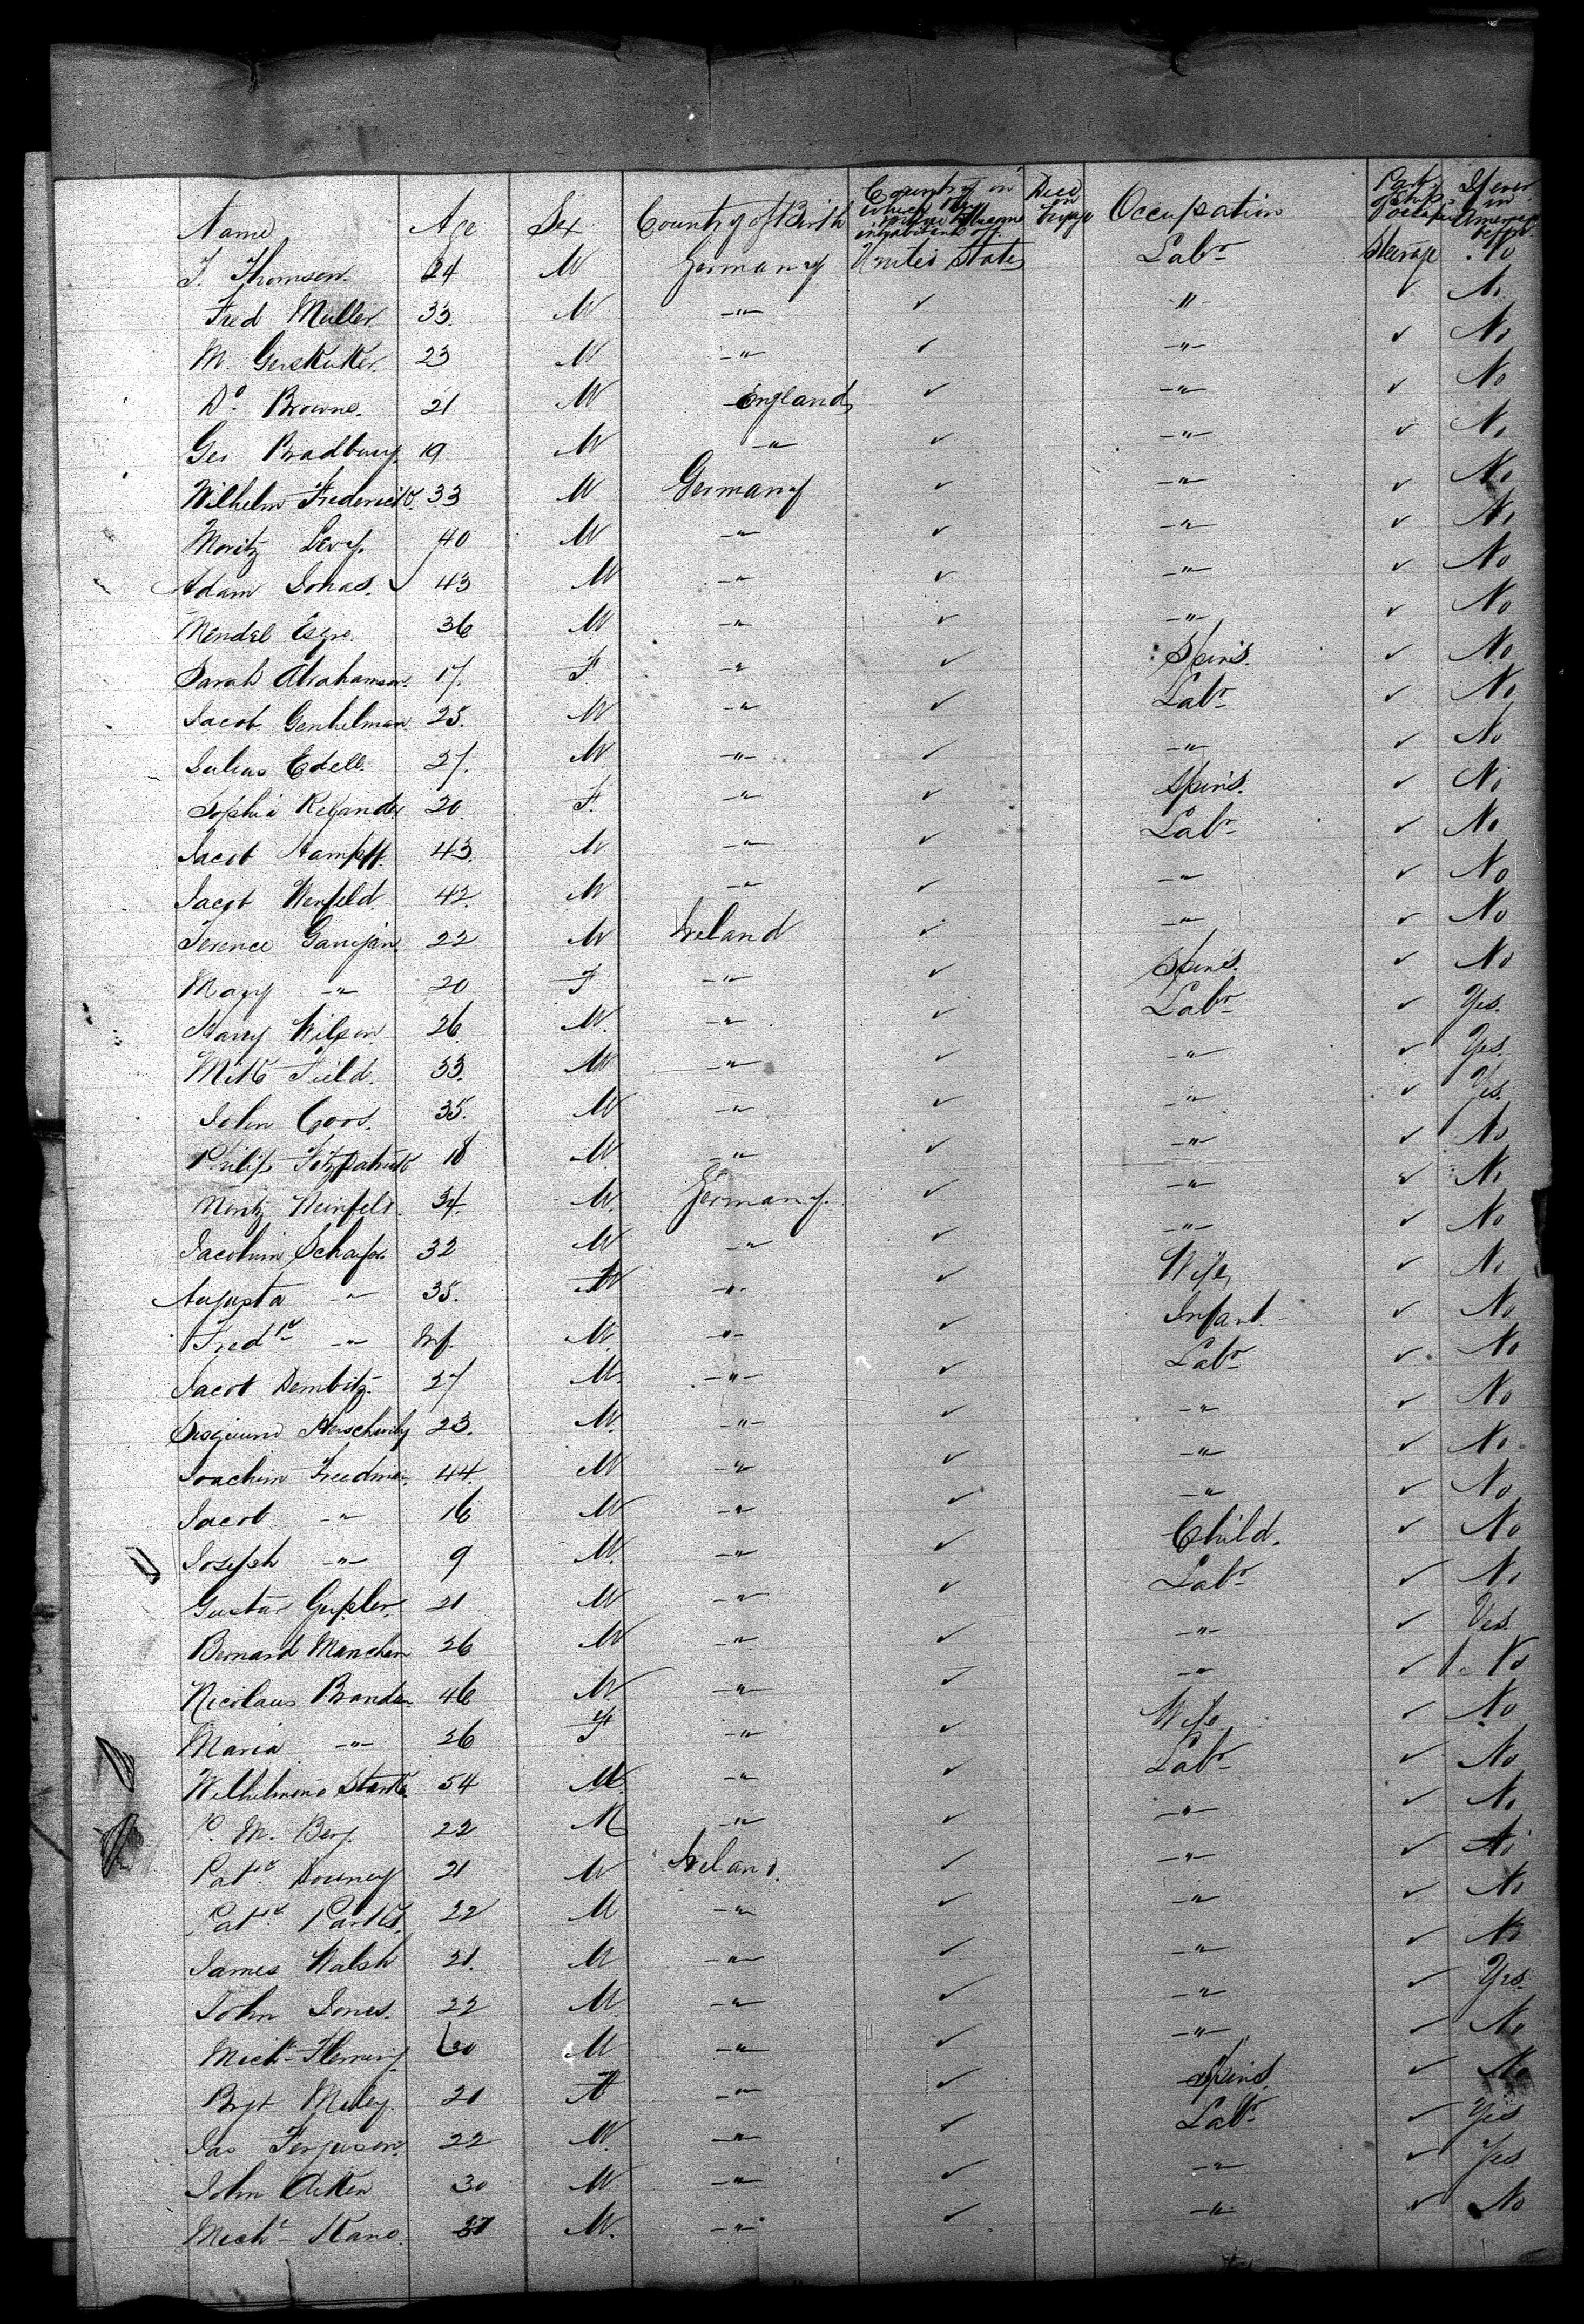 Name Age Sex Country of Birth Country in which they intend to become inhabitants of Died on Voyage Occupation Part of Ship occupied If ever in America before
J. Thomsen. 24 M Germany United States Labr Steerage No
Fred Muller 33. M -"- ✓ " ✓ No
M. 23 M -"- ✓ -"- ✓ No
Do. Browne. 21 M England ✓ -"- ✓ No
Geo Bradbury. 19 M -"- ✓ -"- ✓ No
Wilhelm Frederick. 33 M Germany ✓ -"- ✓ No
Moritz Levy. 40 M -"- ✓ -"- ✓ No
Adam Jonas. ✓ 43 M -"- ✓ -"- ✓ No
Mendel 36 M -"- ✓ -"- ✓ No
Sarah Abrahamson. 17. F. -"- ✓ Spins. ✓ No
Jacob Genhelman 25. M -"- ✓ Labr ✓ No
Julius Edell. 27. M -"- ✓ -"- ✓ No
Sophia 20. F. -"- ✓ Spins. ✓ No
Jacob 43. M -"- ✓ Labr ✓ No
Jacob Wenfeld 42. M -"- ✓ -"- ✓ No
Terence 22 M Ireland ✓ -"- ✓ No
Mary -"- 20 F -"- ✓ Spins. ✓ No
Harry Wilson. 26 M. -"- ✓ Labr ✓ Yes.
Field. 33. M -"- ✓ -"- ✓ Yes.
John 35. M -"- ✓ -"- ✓ Yes.
Philip Fitzpatrick 18 M. -"- ✓ -"- ✓ No
Moritz Weinfeld. 34. M. Germany. ✓ -"- ✓ No
Schafer. 32 M -"- ✓ -"- ✓ No
Augusta -"- 35. -"- ✓ Wife, ✓ No
Fredk -"- Inf. M. -"- ✓ Infant. ✓ No
Jacob Dembitz. 27 M. -"- ✓ Labr ✓ No
23. M. -"- ✓ -"- ✓ No
Joachim Freedman. 44. M -"- ✓ -"- ✓ No
Jacob -"- 16 M -"- ✓ -"- ✓ No
Joseph -"- 9 M. -"- ✓ Child. ✓ No
Gustav 21 M -"- ✓ Labr ✓ No
Bernard Manchen 26 M -"- ✓ -"- ✓ Yes.
Nicolaus 46 M. -"- ✓ -"- ✓ No
Maria -"- 26 F -"- ✓ Wife ✓ No
Wilhelmina 54 M. -"- ✓ Labr ✓ No
P. M. Berg. 22 M -"- ✓ -"- ✓ No
Patk. Downey 21 M Ireland. ✓ -"- ✓ No
Patk. Parks. 22 M -"- ✓ -"- ✓ No
James Walsh 21. M -"- ✓ -"- ✓ No
John Jones. 22 M -"- ✓ -"- ✓ Yes.
Michl Fleming 20 M -"- ✓ -"- ✓ No
Bgt Meley. 21 F -"- ✓ Spins. ✓ No
Jas Ferguson. 22 M. -"- ✓ Labr ✓ Yes
John Aiken 30 M -"- ✓ -"- ✓ Yes.
Michl Kane. 37 M. -"- ✓ -"- ✓ No